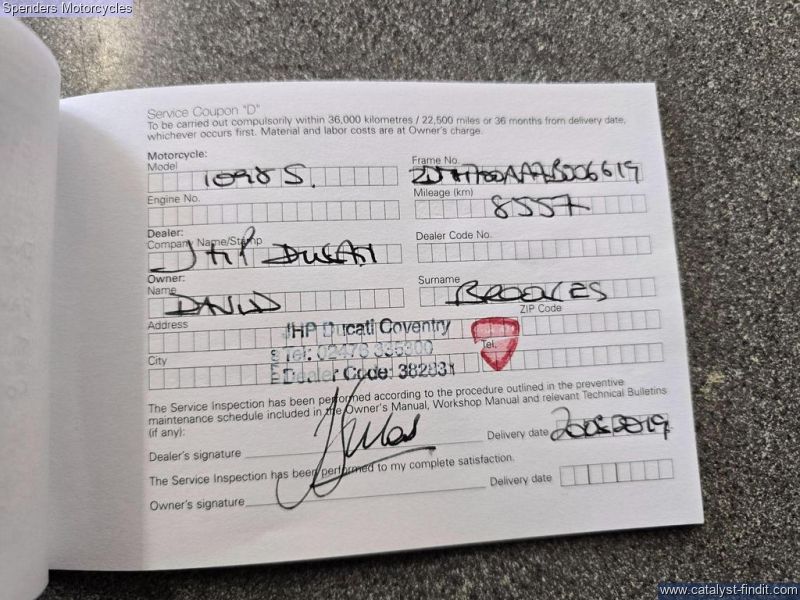 Spenders Motorcycles
Service Coupon "D"
To be carried out compulsorily within 36,000 kilometres / 22,500 miles or 36 months from delivery date,
whichever occurs first. Material and labor costs are at Owner's charge.
Motorcycle:
Model
1098 S.
Frame No.
Engine No.
Mileage (km)
8557
Dealer:
Company Name/Stamp
JHP DUCATI
Dealer Code No.
Owner:
Name
DAVID
Surname
BROOKES
Address
ZIP Code
JHP Ducati Coventry
City
Tel: 02476
Tel.
Dealer Code: 382831
The Service Inspection has been performed according to the procedure outlined in the preventive
maintenance schedule included in the Owner's Manual, Workshop Manual and relevant Technical Bulletins
(if any):
Dealer's signature
Delivery date
The Service Inspection has been performed to my complete satisfaction.
Owner's signature
Delivery date
www.catalyst-findit.com